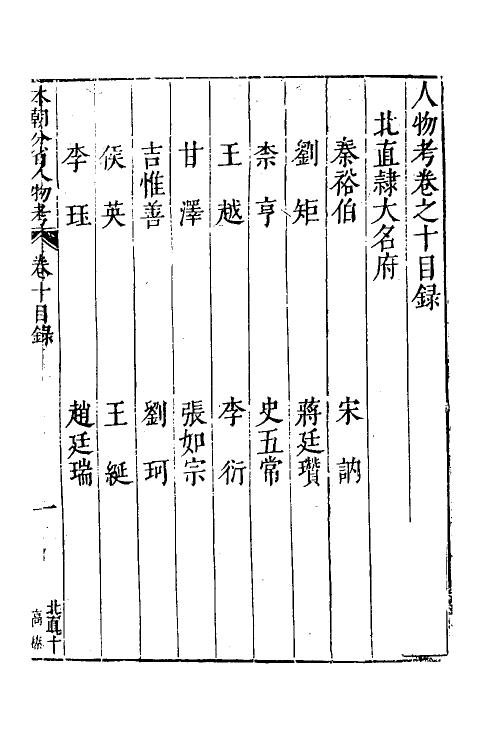 人物考卷之十目録
北直隸大名府
秦裕伯 宋訥
劉矩 蔣廷瓚
柰亨 史五常
王越 李衍
甘澤 張如宗
吉惟善 劉珂
侯英 王綖
李珏 趙廷瑞
本朝分省人物考 卷十目錄 一 北直十